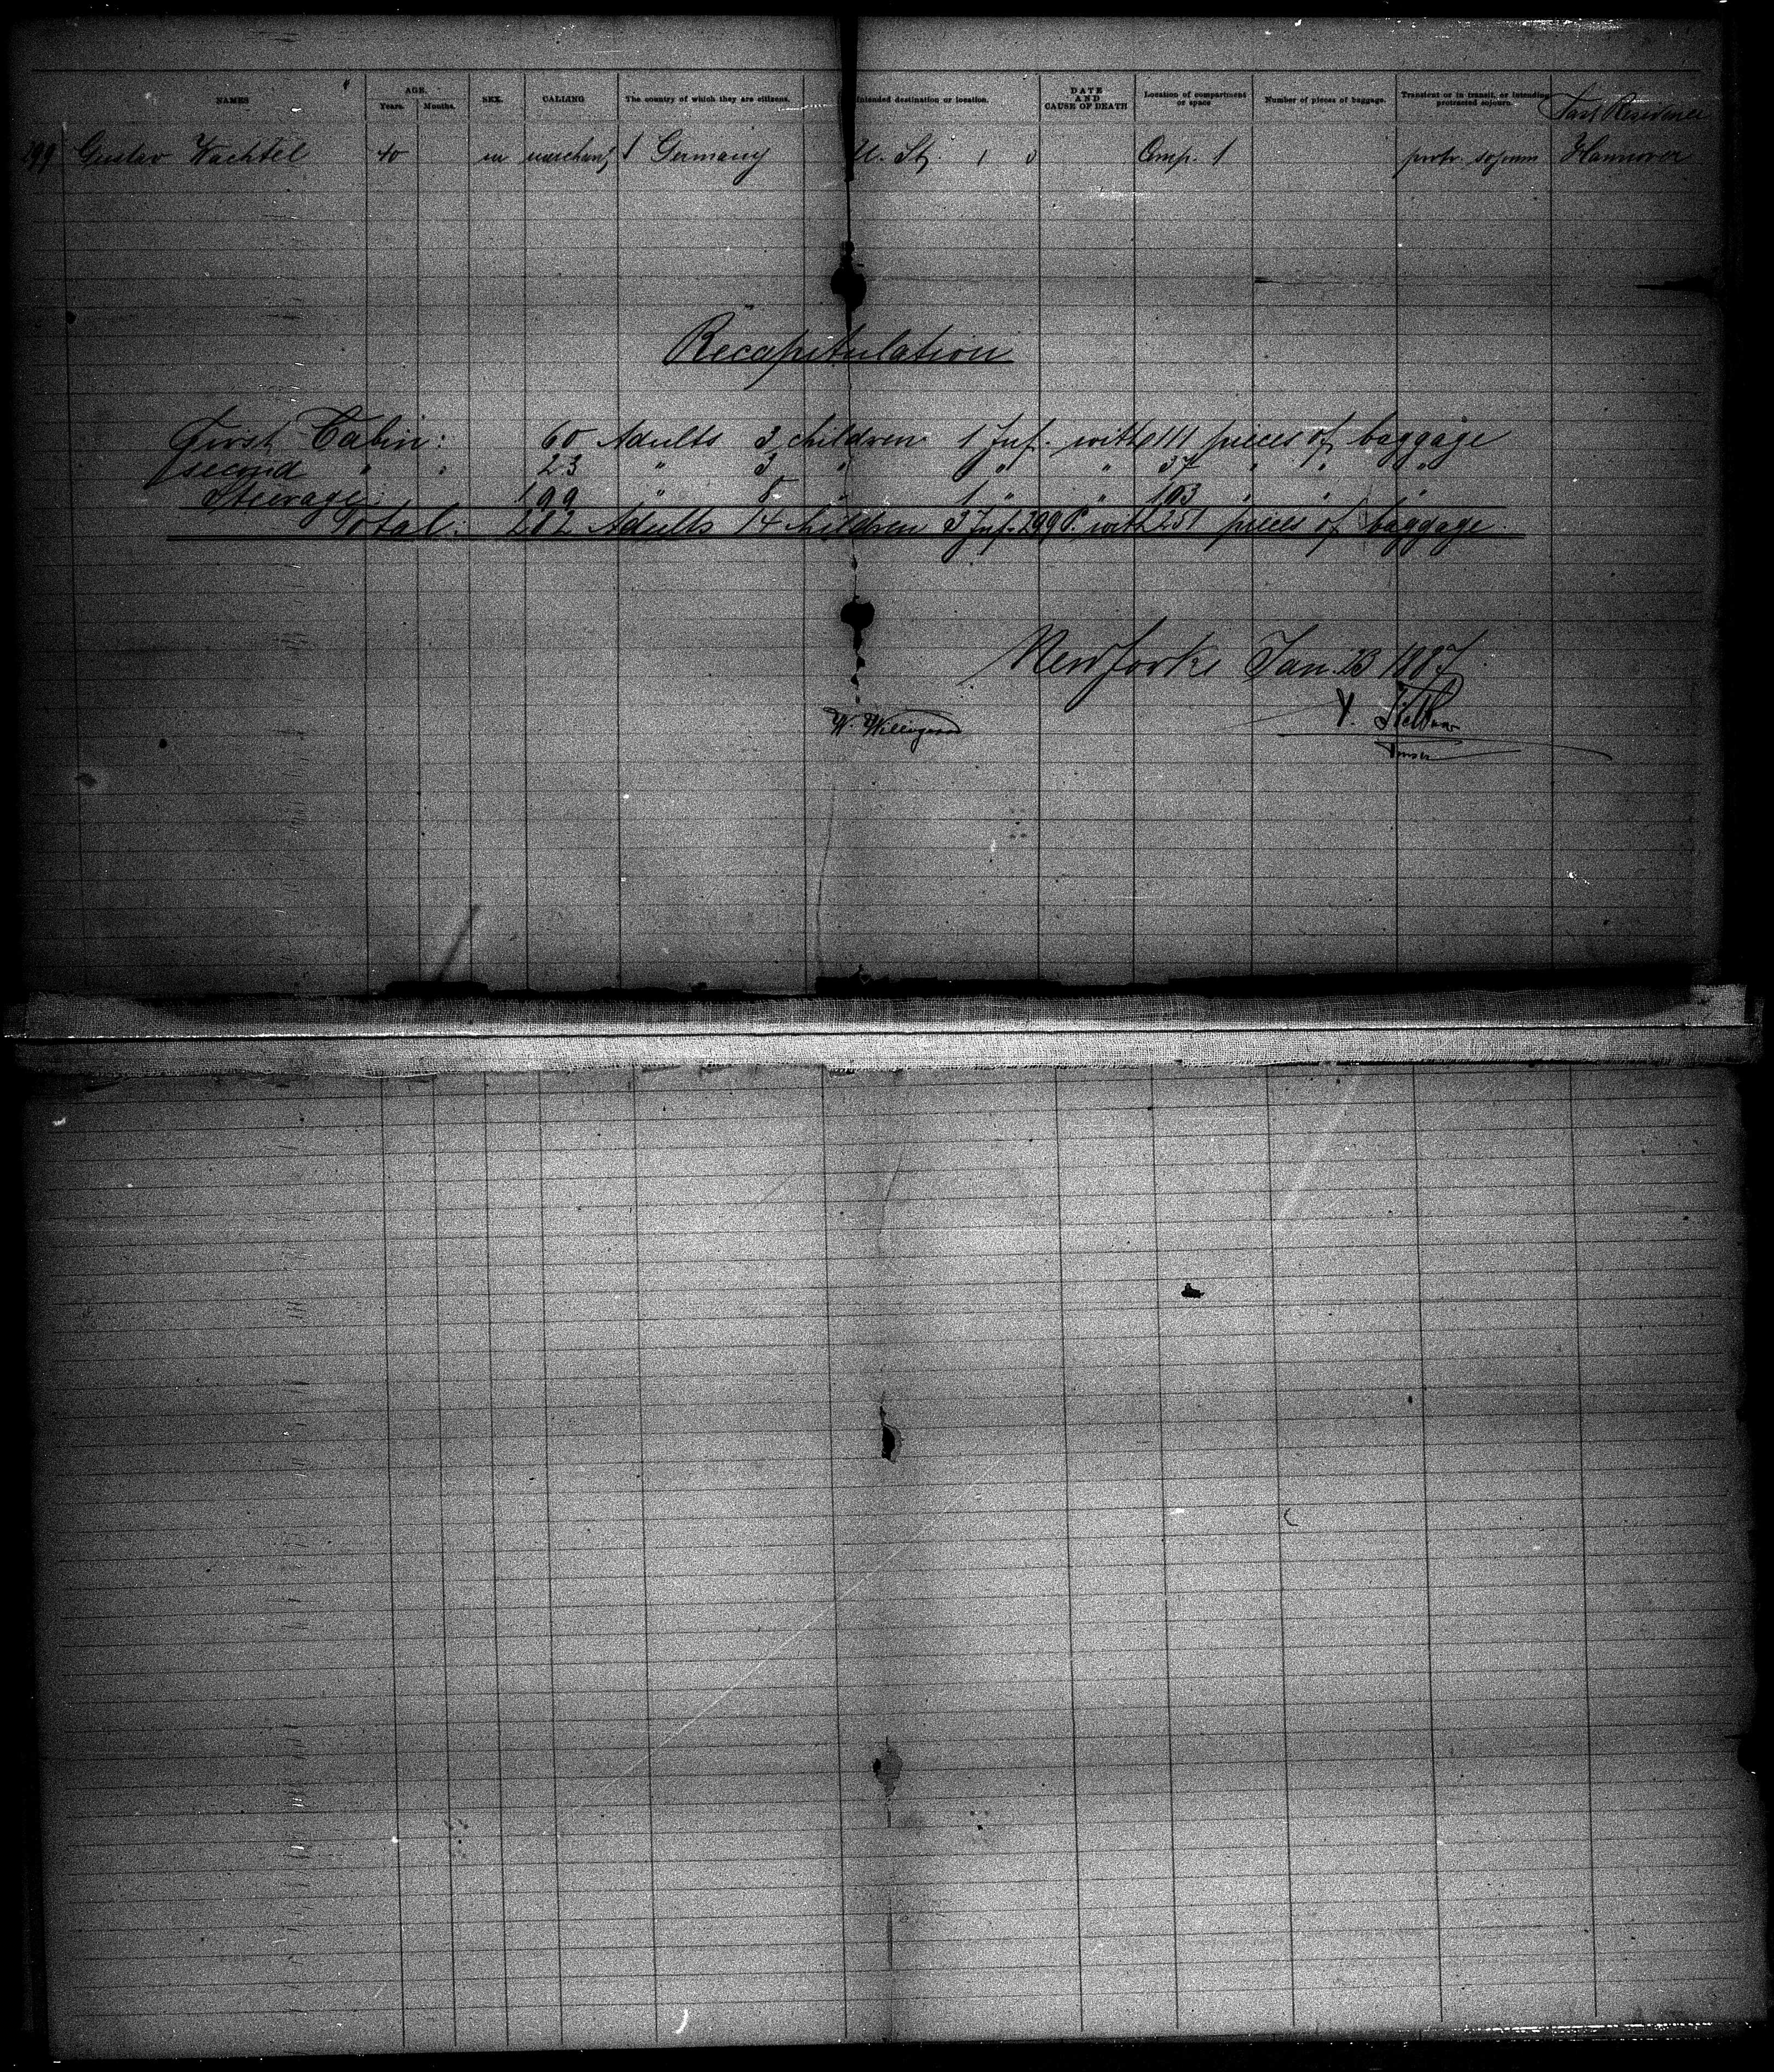 NAMES AGE. Years. Months. SEX. CALLING The country of which they are citizens. Intended destination or location. DATE AND CAUSE OF DEATH Location of compartment or space Number of pieces of baggage. Transient or in transit, or intending protracted sojourn. Last Residence
299 Gustav Wachtel 40 m merchant 1 Germany U. St. 1 3 Comp. 1 protr. sojourn Hannover
Recapitulation
First Cabin: 60 Adults 3 children 1 Inf. with 111 pieces of baggage
second " : 23 " 3 " 1 " " 37 " " "
Steerage: 199 " 8 " 1 " " 103 " " "
Total: 282 Adults 14 children 3 Inf. 299 P. with 251 pieces of baggage.
New York Jan. 23 1887
W.